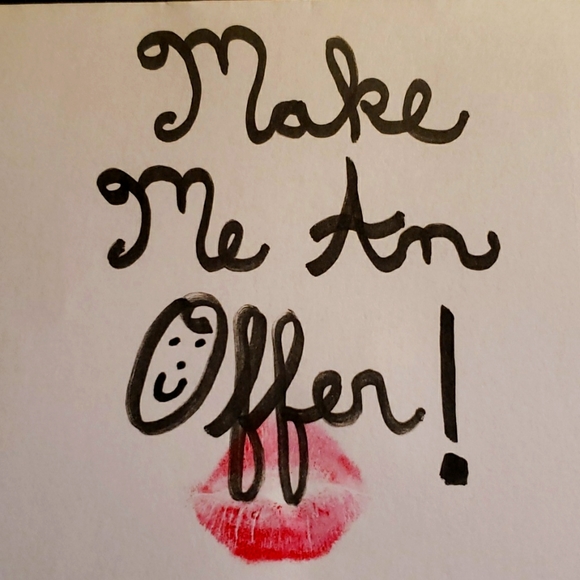 Make
Me An
Offer!